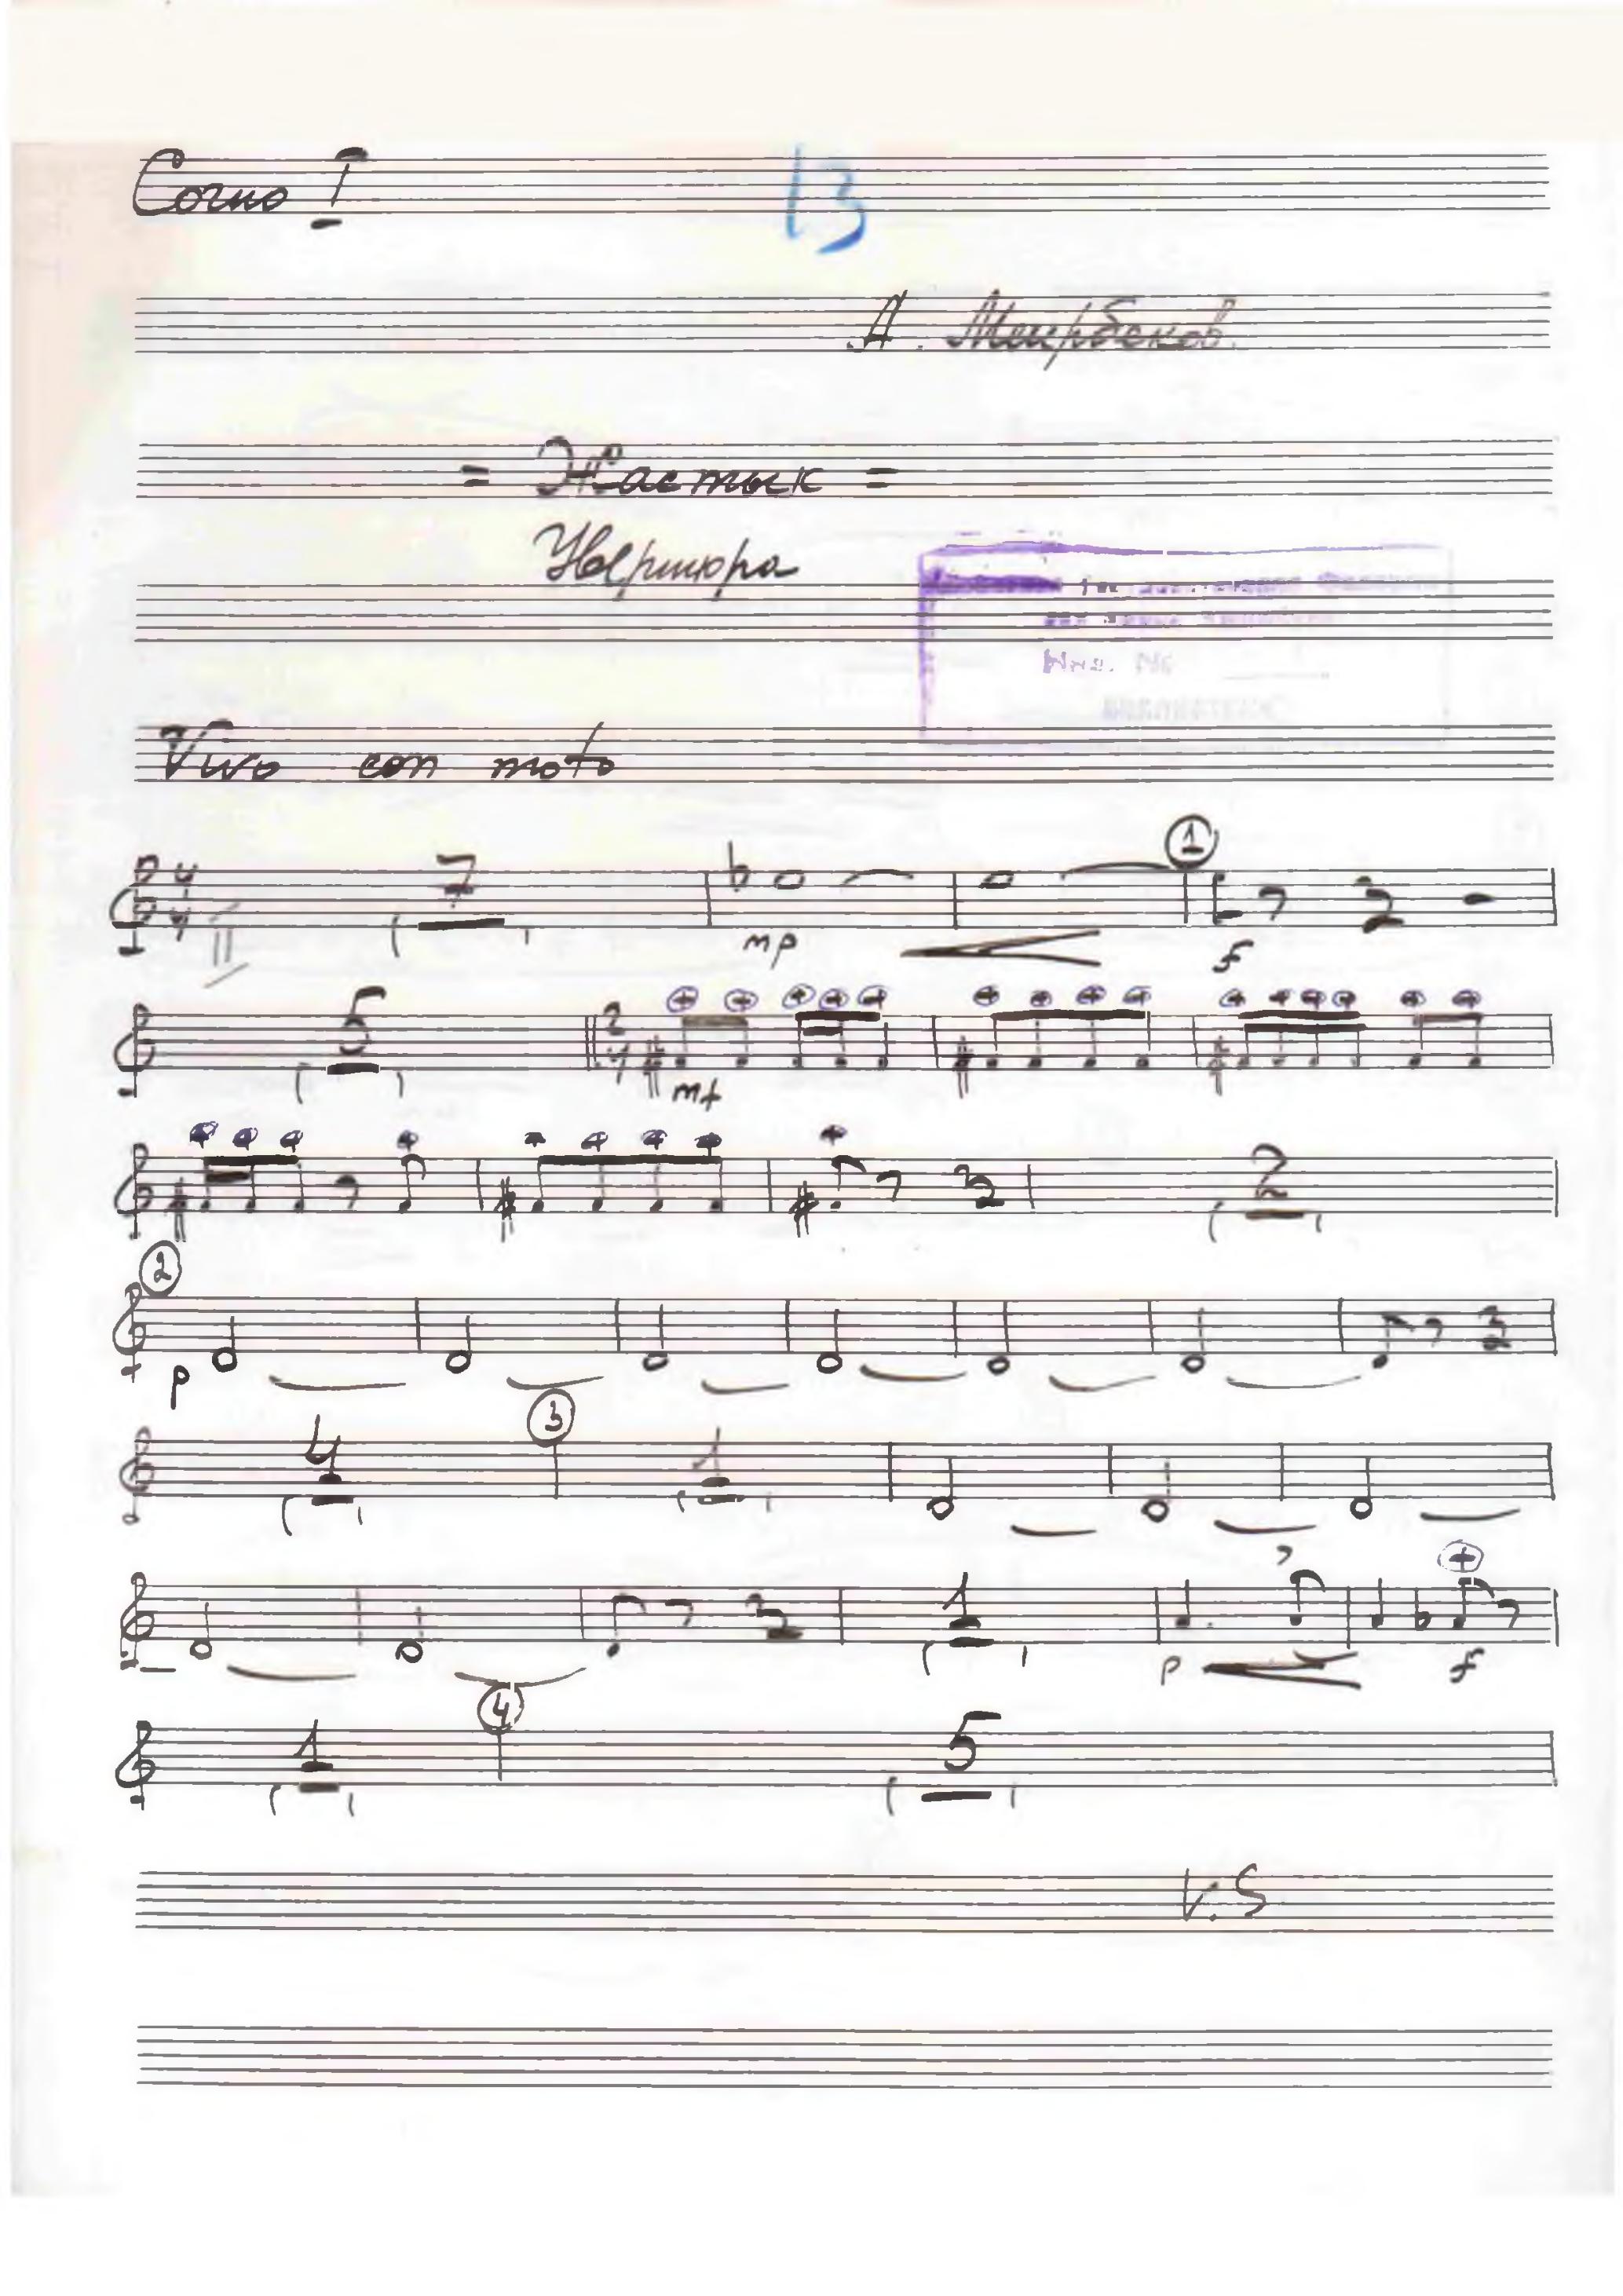 Corno I
13
А. Меирбеков.
= Жастык =
Увертюра
Инв. №
Vivo con moto
4 4 7 1
mp f
5 2 4
mf
2
2
p
4 3 1
1
p f
1 4 5
V.S